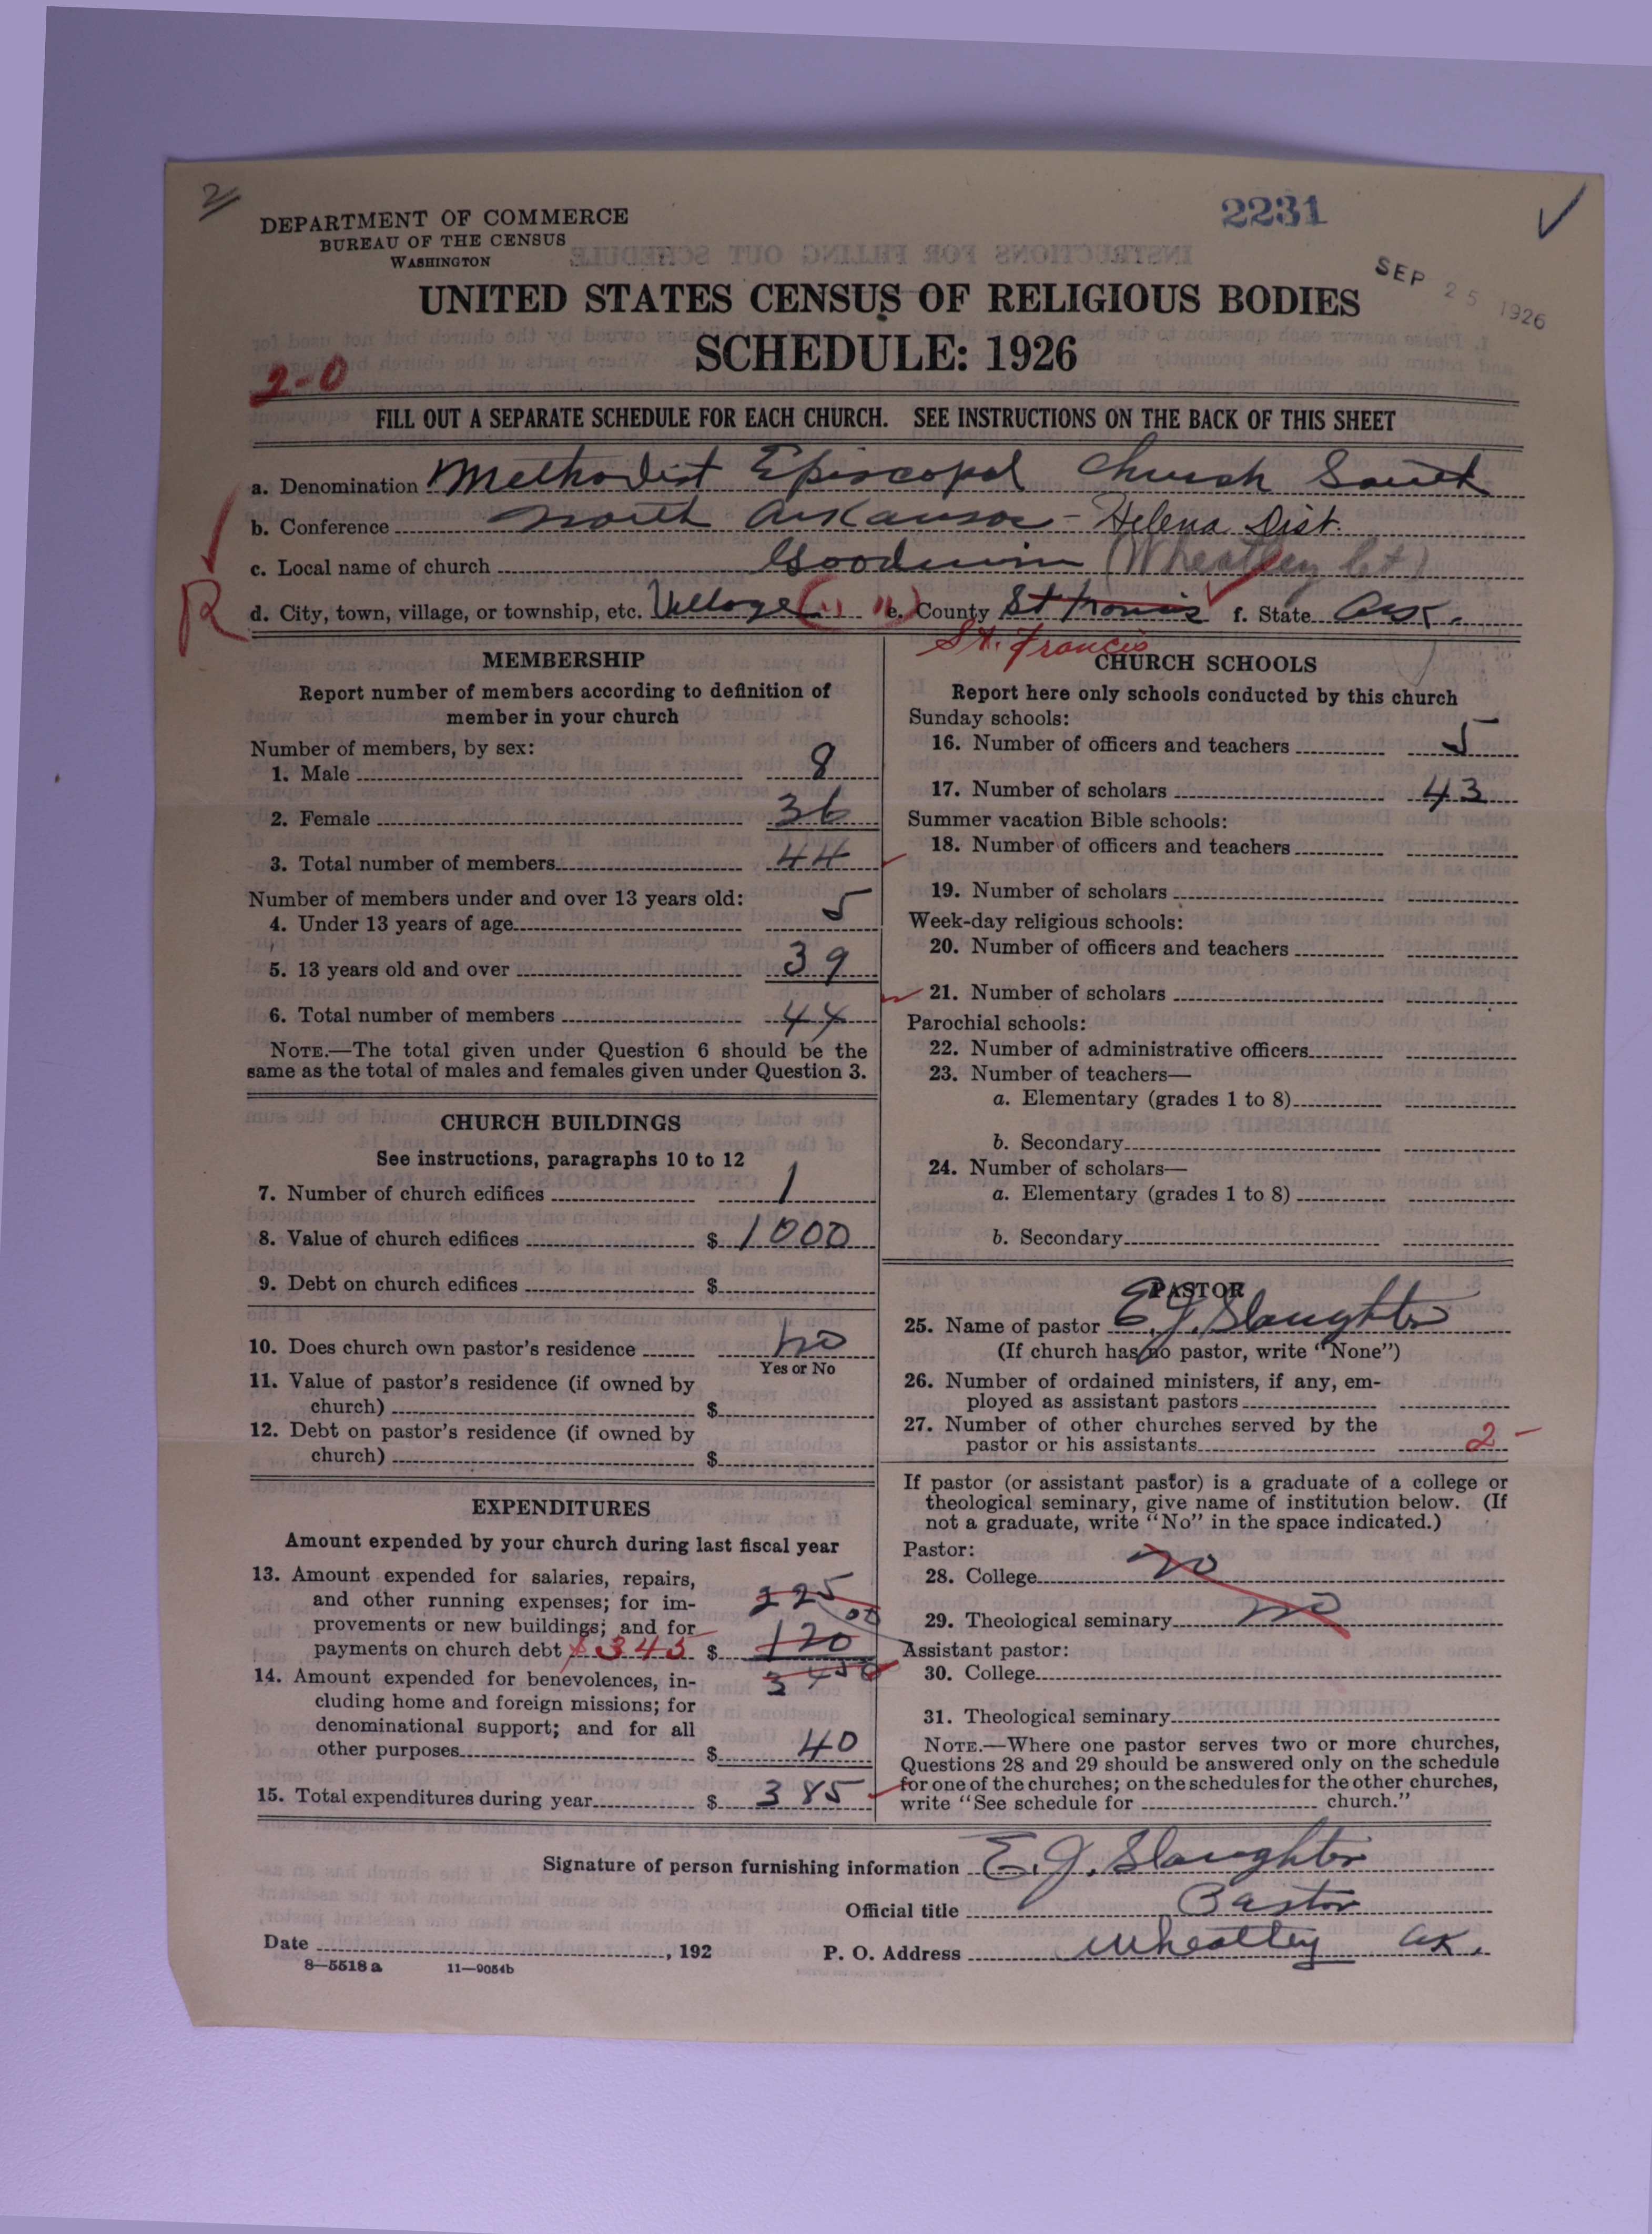 2
DEPARTMENT OF COMMERCE
BUREAU OF THE CENSUS
WASHINGTON
2231
SEP 25 1926
UNITED STATES CENSUS OF RELIGIOUS BODIES
SCHEDULE: 1926
2-0
FILL OUT A SEPARATE SCHEDULE FOR EACH CHURCH. SEE INSTRUCTIONS ON THE BACK OF THIS SHEET
a. Denomination Methodist Episcopal Church South
b. Conference North Arkansas - Helena Dist.
c. Local name of church Goodwin (Wheatley Ct)
R
d. City, town, village, or township, etc. Village e. County St Francis f. State Ark.
St. Francis
MEMBERSHIP
Report number of members according to definition of
member in your church
Number of members, by sex:
1. Male 8
2. Female 36
3. Total number of members 44
Number of members under and over 13 years old:
4. Under 13 years of age 5
5. 13 years old and over 39
6. Total number of members 44
NOTE.—The total given under Question 6 should be the
same as the total of males and females given under Question 3.
CHURCH BUILDINGS
See instructions, paragraphs 10 to 12
7. Number of church edifices 1
8. Value of church edifices $ 1000
9. Debt on church edifices $
10. Does church own pastor's residence no
Yes or No
11. Value of pastor's residence (if owned by
church) $
12. Debt on pastor's residence (if owned by
church) $
EXPENDITURES
Amount expended by your church during last fiscal year
13. Amount expended for salaries, repairs,
and other running expenses; for im- 225
provements or new buildings; and for
payments on church debt $345 $ 120
14. Amount expended for benevolences, in-
cluding home and foreign missions; for
denominational support; and for all
other purposes $ 40
15. Total expenditures during year $ 385
CHURCH SCHOOLS
Report here only schools conducted by this church
Sunday schools:
16. Number of officers and teachers 5
17. Number of scholars 43
Summer vacation Bible schools:
18. Number of officers and teachers
19. Number of scholars
Week-day religious schools:
20. Number of officers and teachers
21. Number of scholars
Parochial schools:
22. Number of administrative officers
23. Number of teachers—
a. Elementary (grades 1 to 8)
b. Secondary
24. Number of scholars—
a. Elementary (grades 1 to 8)
b. Secondary
PASTOR
25. Name of pastor E. J. Slaughter
(If church has no pastor, write "None")
26. Number of ordained ministers, if any, em-
ployed as assistant pastors
27. Number of other churches served by the
pastor or his assistants 2
If pastor (or assistant pastor) is a graduate of a college or
theological seminary, give name of institution below. (If
not a graduate, write "No" in the space indicated.)
Pastor:
28. College no
29. Theological seminary no
Assistant pastor:
30. College
31. Theological seminary
NOTE.—Where one pastor serves two or more churches,
Questions 28 and 29 should be answered only on the schedule
for one of the churches; on the schedules for the other churches,
write "See schedule for church."
Signature of person furnishing information E. J. Slaughter
Official title Pastor
Date , 192
P. O. Address Wheatley Ark.
8—5518 a 11—9054b